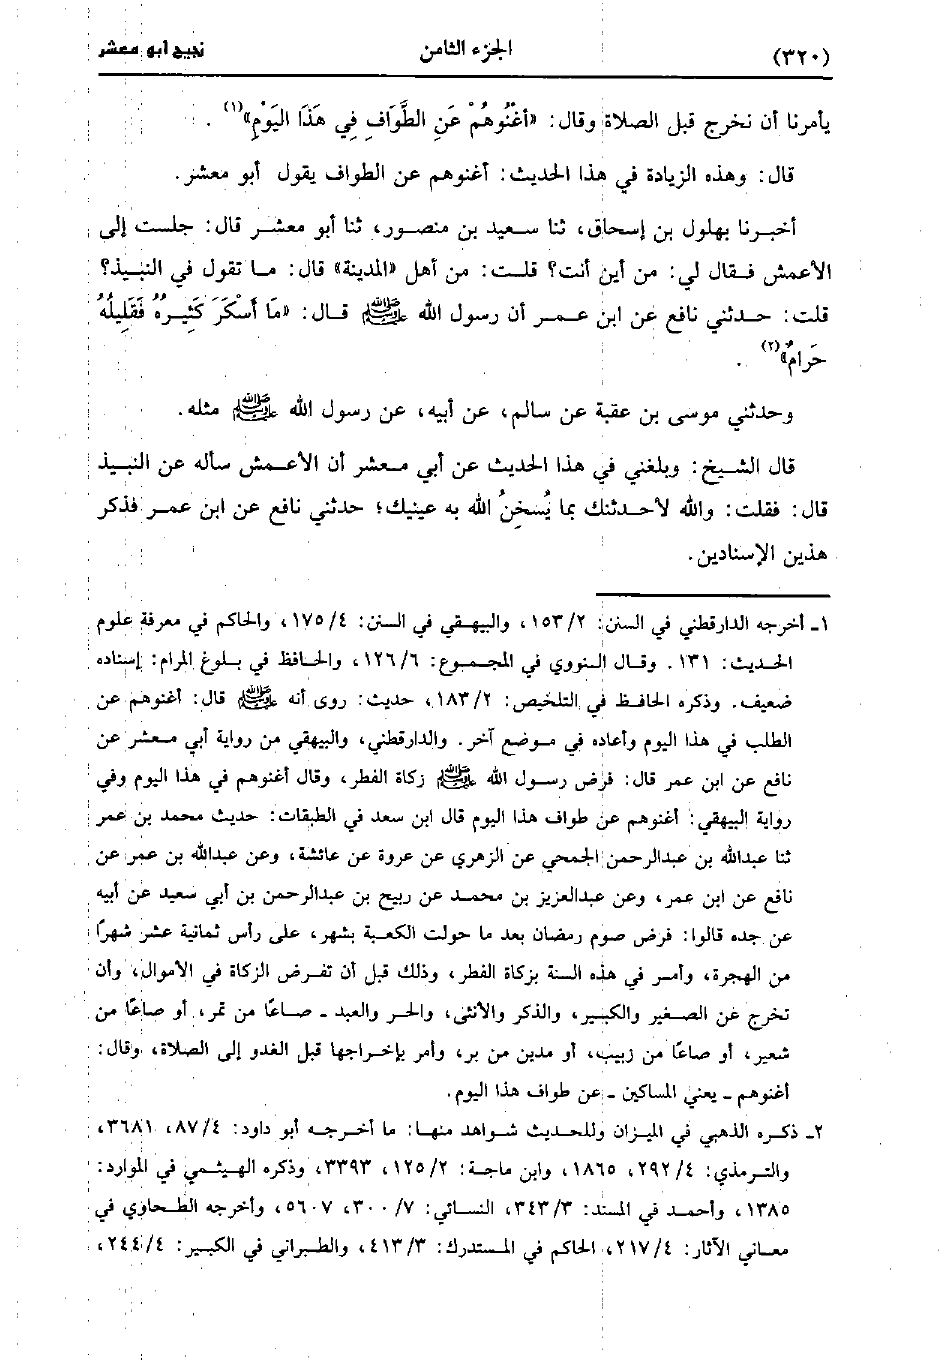 (٣٢٠) الجزء الثامن نجيح أبو معشر
يأمرنا أن نخرج قبل الصلاة وقال: «أَغْنُوهُمْ عَنِ الطَّوَافِ فِي هَذَا اليَوْمِ»(١) .
قال: وهذه الزيادة في هذا الحديث: أغنوهم عن الطواف يقول أبو معشر.
أخبرنا بهلول بن إسحاق، ثنا سعيد بن منصور، ثنا أبو معشر قال: جلست إلى
الأعمش فقال لي: من أين أنت؟ قلت: من أهل «المدينة» قال: ما تقول في النبيذ؟
قلت: حدثني نافع عن ابن عمر أن رسول الله ﷺ قال: «مَا أَسْكَرَ كَثِيرُهُ فَقَلِيلُهُ
حَرَامٌ»(٢) .
وحدثني موسى بن عقبة عن سالم، عن أبيه، عن رسول الله ﷺ مثله.
قال الشيخ: وبلغني في هذا الحديث عن أبي معشر أن الأعمش سأله عن النبيذ
قال: فقلت: والله لأحدثنك بما يُسخِنُ الله به عينيك؛ حدثني نافع عن ابن عمر فذكر
هذين الإسنادين.
١ـ أخرجه الدارقطني في السنن: ١٥٣/٢، والبيهقي في السنن: ١٧٥/٤، والحاكم في معرفة علوم
الحديث: ١٣١. وقال النووي في المجموع: ١٢٦/٦، والحافظ في بلوغ المرام: إسناده
ضعيف. وذكره الحافظ في التلخيص: ١٨٣/٢، حديث: روى أنه ﷺ قال: أغنوهم عن
الطلب في هذا اليوم وأعاده في موضع آخر. والدارقطني، والبيهقي من رواية أبي معشر عن
نافع عن ابن عمر قال: فرض رسول الله ﷺ زكاة الفطر، وقال أغنوهم في هذا اليوم وفي
رواية البيهقي: أغنوهم عن طواف هذا اليوم قال ابن سعد في الطبقات: حديث محمد بن عمر
ثنا عبدالله بن عبدالرحمن الجمحي عن الزهري عن عروة عن عائشة، وعن عبدالله بن عمر عن
نافع عن ابن عمر، وعن عبدالعزيز بن محمد عن ربيح بن عبدالرحمن بن أبي سعيد عن أبيه
عن جده قالوا: فرض صوم رمضان بعد ما حولت الكعبة بشهر، على رأس ثمانية عشر شهرًا
من الهجرة، وأمر في هذه السنة بزكاة الفطر، وذلك قبل أن تفرض الزكاة في الأموال، وأن
تخرج عن الصغير والكبير، والذكر والأنثى، والحر والعبد ـ صاعًا من تمر، أو صاعًا من
شعير، أو صاعًا من زبيب، أو مدين من بر، وأمر بإخراجها قبل الغدو إلى الصلاة، وقال:
أغنوهم ـ يعني المساكين ـ عن طواف هذا اليوم.
٢ـ ذكره الذهبي في الميزان وللحديث شواهد منها: ما أخرجه أبو داود: ٨٧/٤، ٣٦٨١،
والترمذي: ٢٩٢/٤، ١٨٦٥، وابن ماجة: ١٢٥/٢، ٣٣٩٣، وذكره الهيثمي في الموارد:
١٣٨٥، وأحمد في المسند: ٣٤٣/٣، النسائي: ٣٠٠/٧، ٥٦٠٧، وأخرجه الطحاوي في
معاني الآثار: ٢١٧/٤، الحاكم في المستدرك: ٤١٣/٣، والطبراني في الكبير: ٢٤٤/٤،